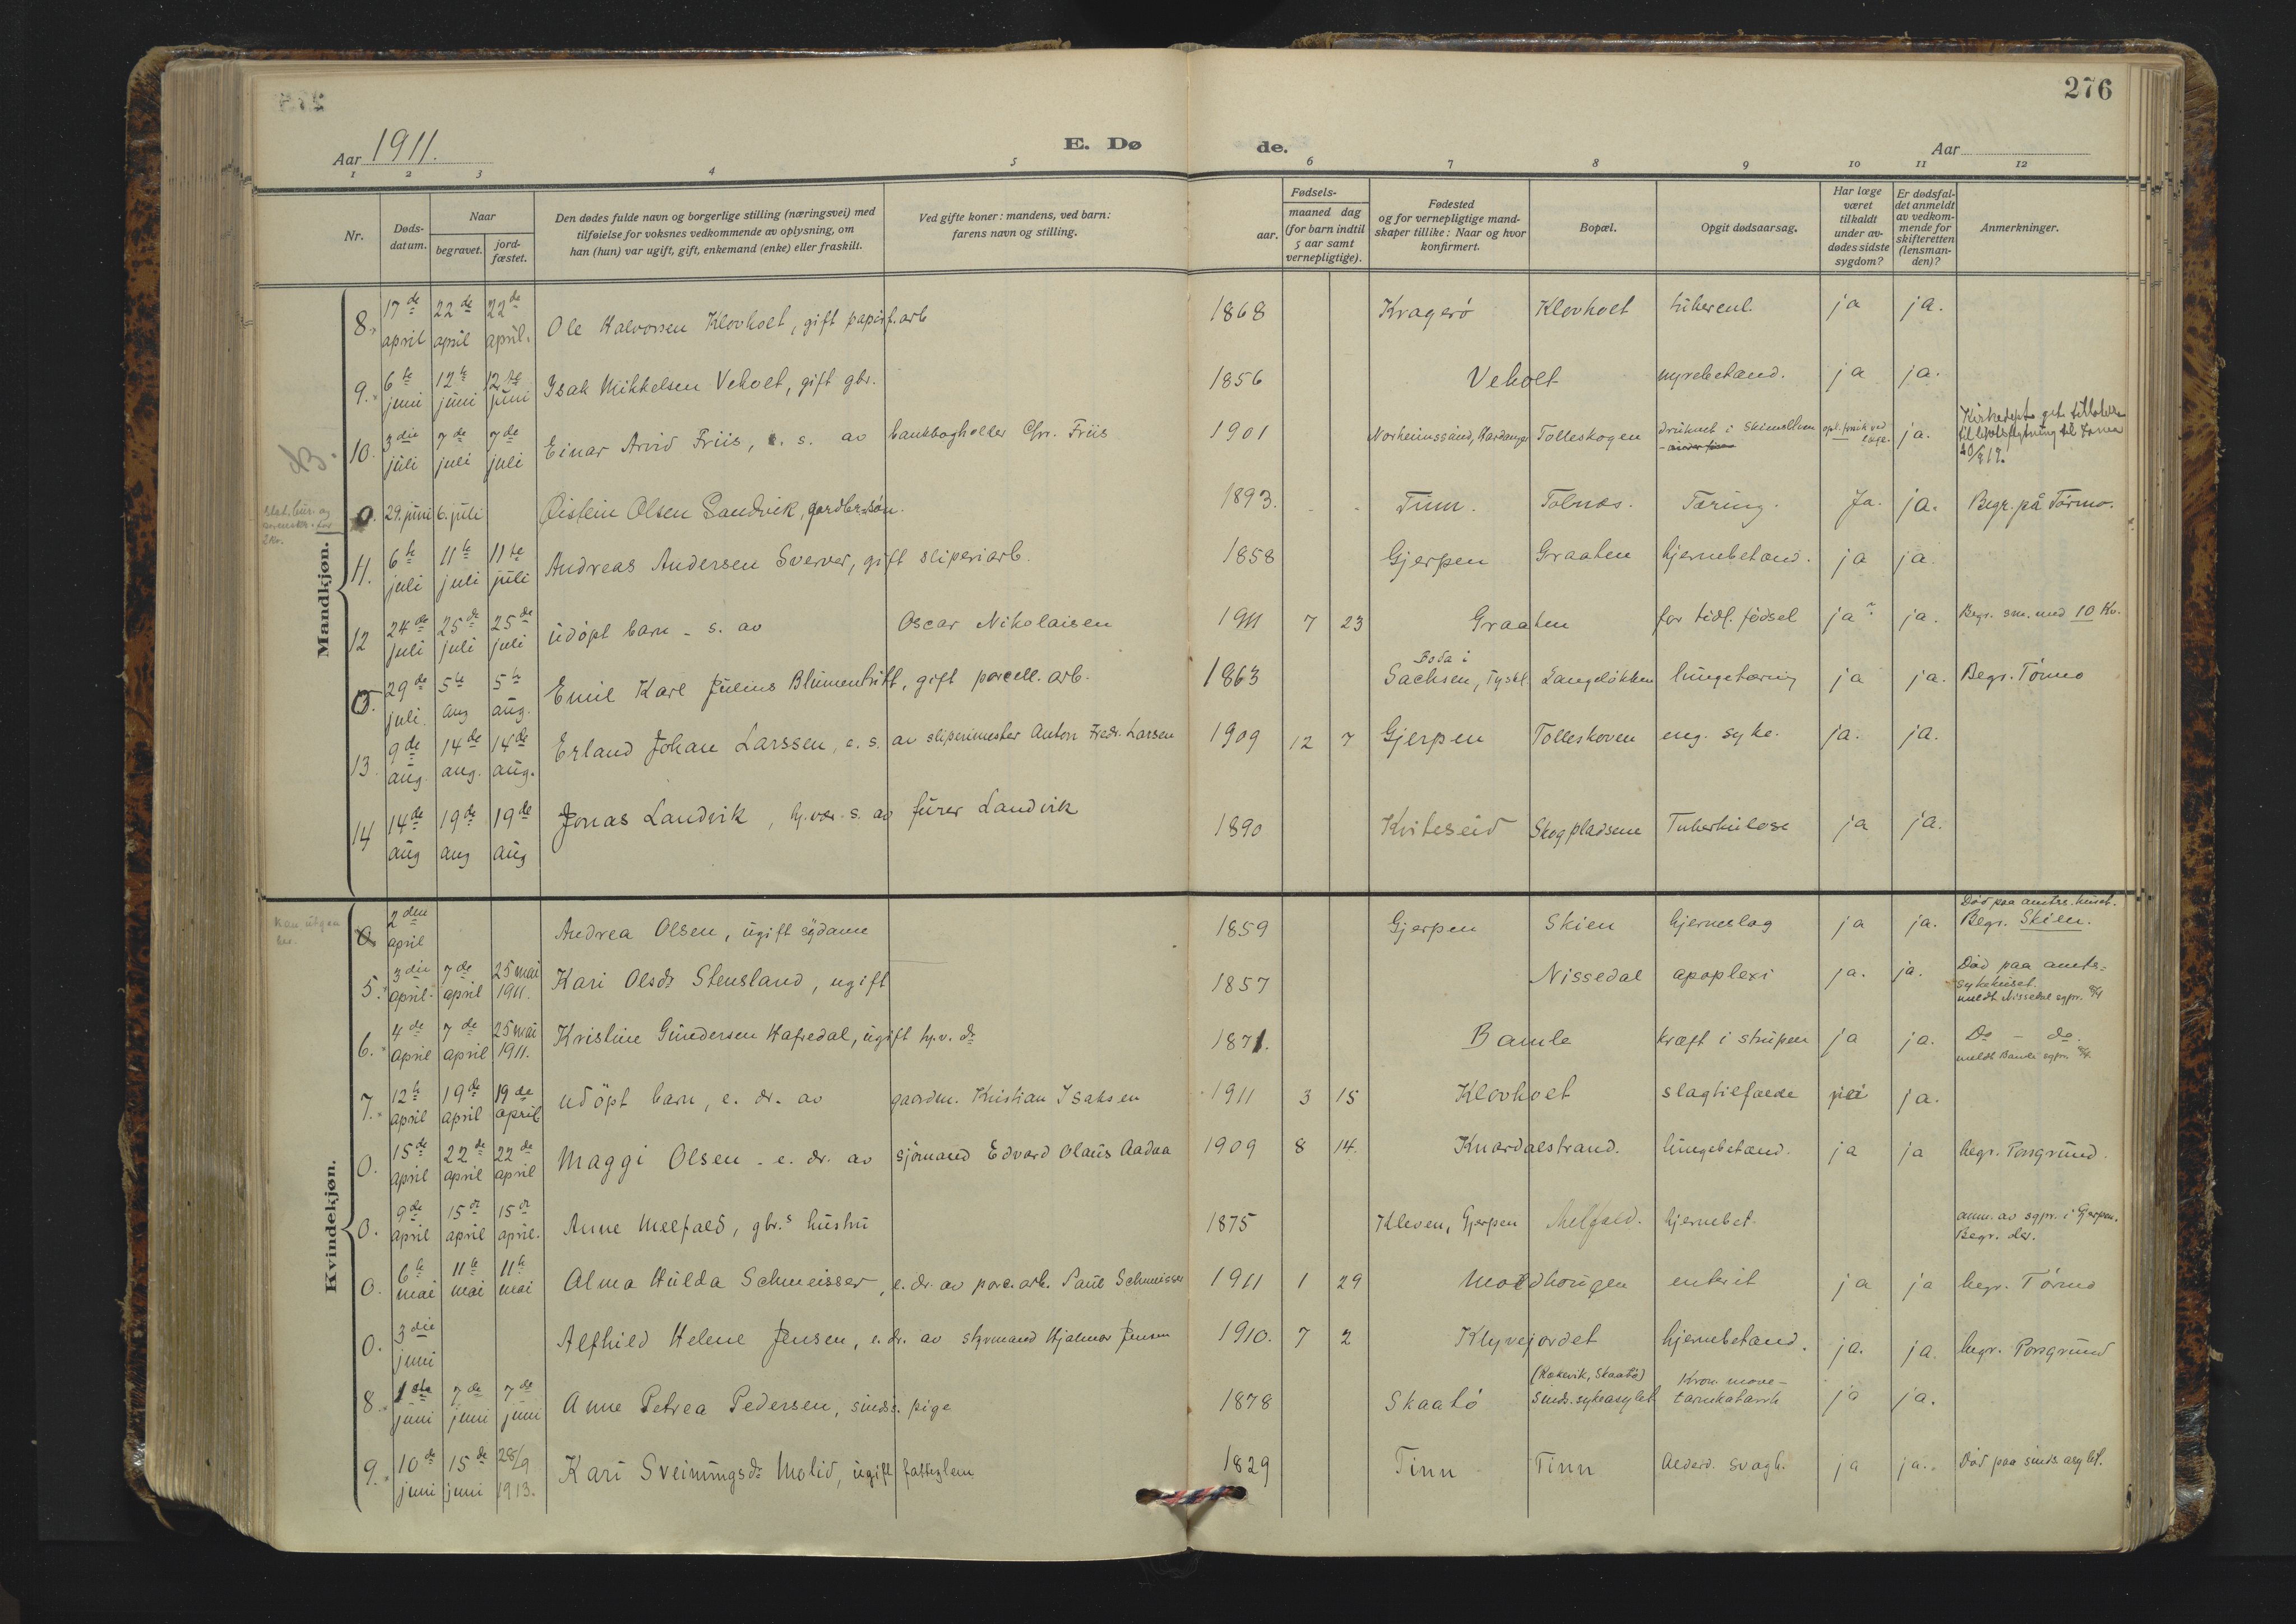 276
Aar 1911.
E. Døde.
Aar
1 2 3 4 5 6 7 8 9 10 11 12
Nr.
Døds-
datum.
Naar
begravet.
jord-
fæstet.
Den dødes fulde navn og borgerlige stilling (næringsvei) med
tilføielse for voksnes vedkommende av oplysning, om
han (hun) var ugift, gift, enkemand (enke) eller fraskilt.
Ved gifte koner: mandens, ved barn:
farens navn og stilling.
Fødsels-
aar.
maaned dag
(for barn indtil
5 aar samt
vernepligtige).
Fødested
og for vernepligtige mand-
skaper tillike: Naar og hvor
konfirmert.
Bopæl.
Opgit dødsaarsag.
Har læge
været
tilkaldt
under av-
dødes sidste
sygdom?
Er dødsfal-
det anmeldt
av vedkom-
mende for
skifteretten
(lensman-
den)?
Anmerkninger.
Mandkjøn.
8. 17de april 22de april 22de april. Ole Halvorsen Klovholt, gift papirf.arb 1868 Kragerø Klovholt tuberkul. ja ja.
9. 6te juni 12te juni 12te juni Isak Mikkelsen Veholt, gift gbr. 1856 Veholt nyrebetænd. ja ja.
10. 3die juli 7de juli 7de juli Einar Arvid Friis, e. s. av bankbogholder Chr. Friis 1901 Norheimssund, Hardanger Tolleskogen druknet i Skienselven ja.
0. 29. juni 6. juli Øistein Olsen Sandvik, gardbr.søn. 1893. Tinn. Tolnæs. Tæring. Ja. ja. Begr. på Tørmo.
11. 6te juli 11te juli 11te juli Andreas Andersen Sverver, gift sliperiarb. 1858 Gjerpen Graaten hjernebetænd. ja ja
12 24de juli 25de juli 25de juli udøpt barn - s. av Oscar Nikolaisen 1911 7 23 Graaten for tidl. fødsel ja ja. Begr. sm. med 10 Kr.
0. 29de juli. 5te aug 5te aug. Emil Karl Julius Blumentritt, gift porcell. arb. 1863 Sachsen, Tyskl. Langeløkken lungetæring ja ja. Begr. Tørmo
13. 9de aug. 14de aug. 14de aug. Erland Johan Larssen, e. s. av sliperimester Anton Fredr. Larsen 1909 12 7 Gjerpen Tolleskoven eng. syke. ja. ja.
14 14de aug 19de aug 19de aug Jonas Landvik, s. av furer Landvik 1890 Kviteseid Skogpladsene Tuberkulose ja ja.
Kvindekjøn.
0 2den april Andrea Olsen, ugift sydame 1859 Gjerpen Skien hjerneslag ja ja. Død paa amtss.huset.
Begr. Skien.
5. 3die april. 7de april 25 mai 1911. Kari Olsdr Stensland, ugift 1857 Nissedal apoplexi ja. ja. Død paa amts-
sykehuset.
meldt Nissedal sgpr. 8/4
6. 4de april 7de april 25 mai 1911. Kristine Gundersen Hafredal, ugift 1871. Bamle kræft i strupen ja ja. Do - do.
meldt Bamle sgpr. 8/4.
7. 12te april 19de april 19de april udøpt barn, e. dr. av gaardm. Kristian Isaksen 1911 3 15 Klovholt slagtilfælde nei ja.
0. 15de april 22de april 22de april Maggi Olsen - e. dr. av sjømand Edvard Olaus Aadaa 1909 8 14. Knardalstrand. lungebetænd. ja ja begr. Porsgrund.
0. 9de april 15de april 15de april. Anne Melfald, gbr.s hustru 1875 Kleven, Gjerpen Melfald. hjernebet. anm. av sgpr. i Gjerpen.
Begr. der.
0. 6te mai 11te mai 11te mai Alma Hulda Schmeisser, e. dr. av porc. arb. Paul Schmeisser 1911 1 29 Moldhougen enterit ja ja begr. Tørmo
0. 3die juni Alfhild Helene Jensen, e. dr. av styrmand Hjalmar Jensen 1910. 7 2 Klyvejordet hjernebetænd. ja. ja. begr. Porsgrund
8. 1ste juni 7de juni 7de juni Anne Petrea Pedersen, sindss. pige 1878 Skaatø (Kokevik, Skaatø)
Sinds.sykeasylet Kron. mave-
tarmkatarrh ja ja.
9. 10de juni 15de juni 28/9 1913. Kari Sveinungsdr Molid, ugift fattiglem 1829 Tinn Tinn Alderd. svagh. ja ja. Død paa sinds.asylet.